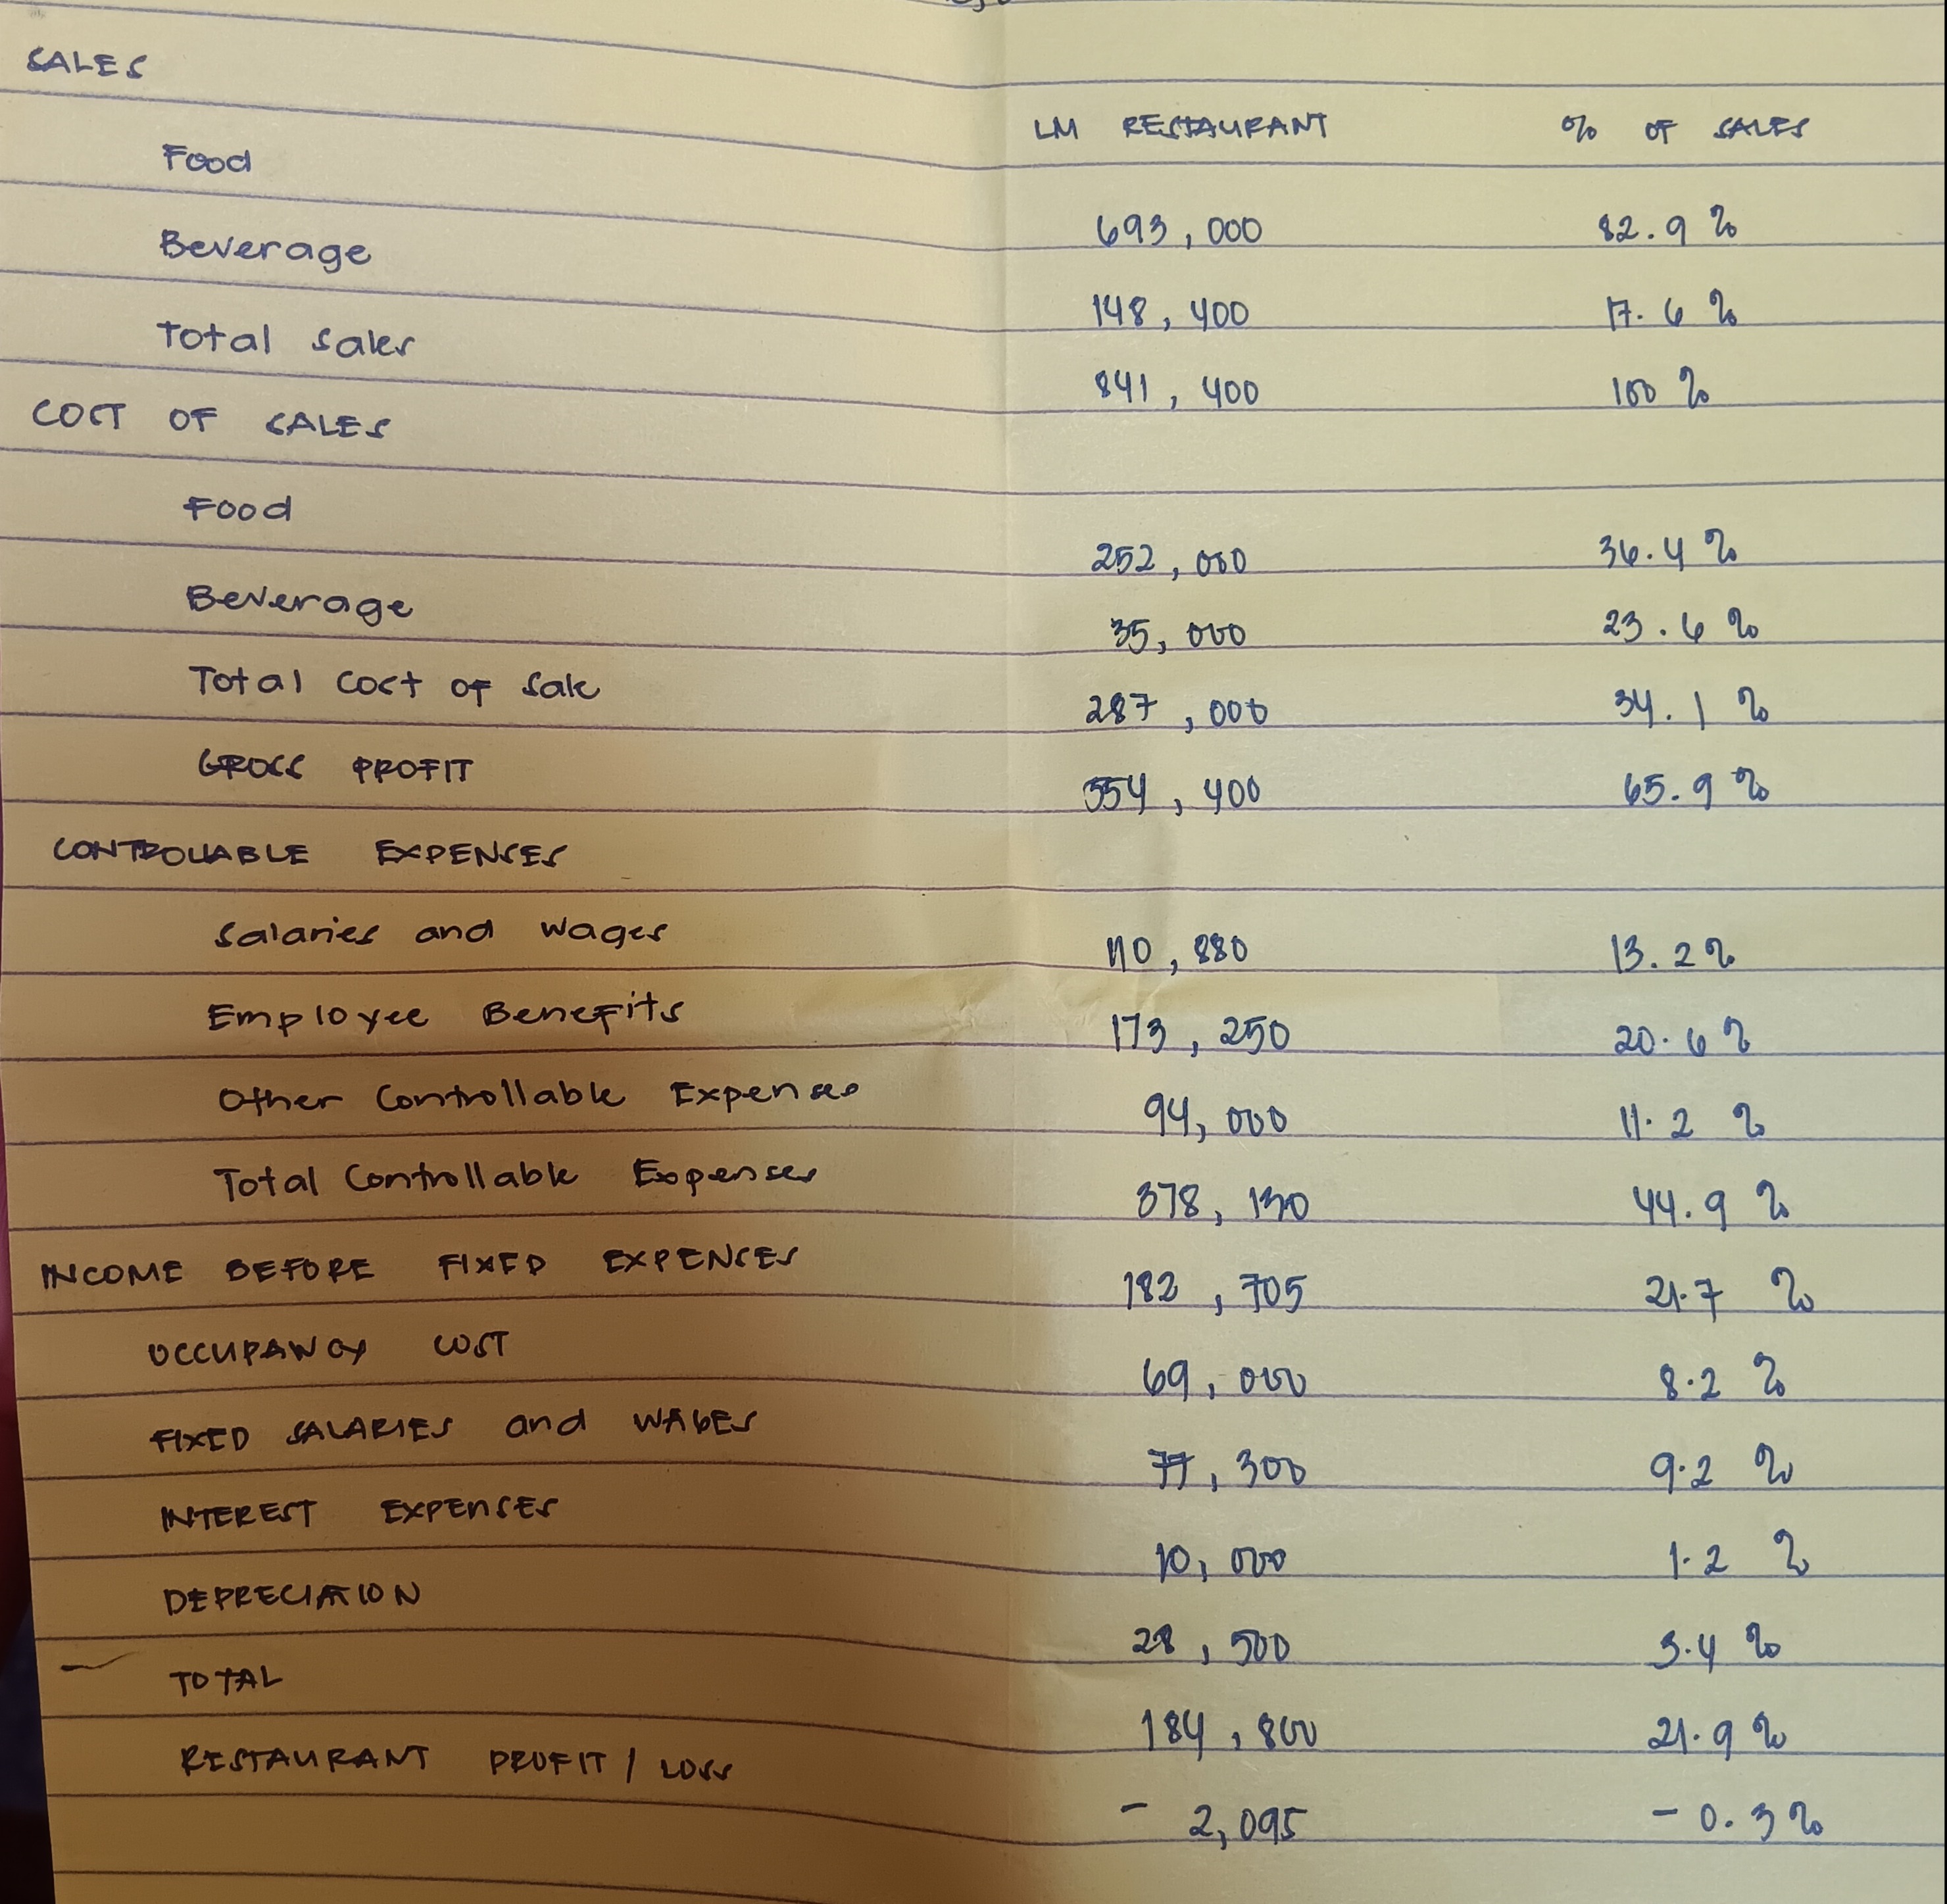 SALES
LM RESTAURANT % OF SALES
Food 693,000 82.9%
Beverage 148,400 17.6%
Total Sales 841,400 100%
COST OF SALES
Food 252,000 36.4%
Beverage 35,000 23.6%
Total Cost of Sale 287,000 34.1%
GROSS PROFIT 554,400 65.9%
CONTROLLABLE EXPENSES
Salaries and Wages 110,880 13.2%
Employee Benefits 173,250 20.6%
Other Controllable Expenses 94,000 11.2%
Total Controllable Expenses 378,130 44.9%
INCOME BEFORE FIXED EXPENSES 182,705 21.7%
OCCUPANCY COST 69,000 8.2%
FIXED SALARIES and WAGES 77,300 9.2%
INTEREST EXPENSES 10,000 1.2%
DEPRECIATION 28,500 3.4%
TOTAL 184,800 21.9%
RESTAURANT PROFIT / LOSS - 2,095 - 0.3%